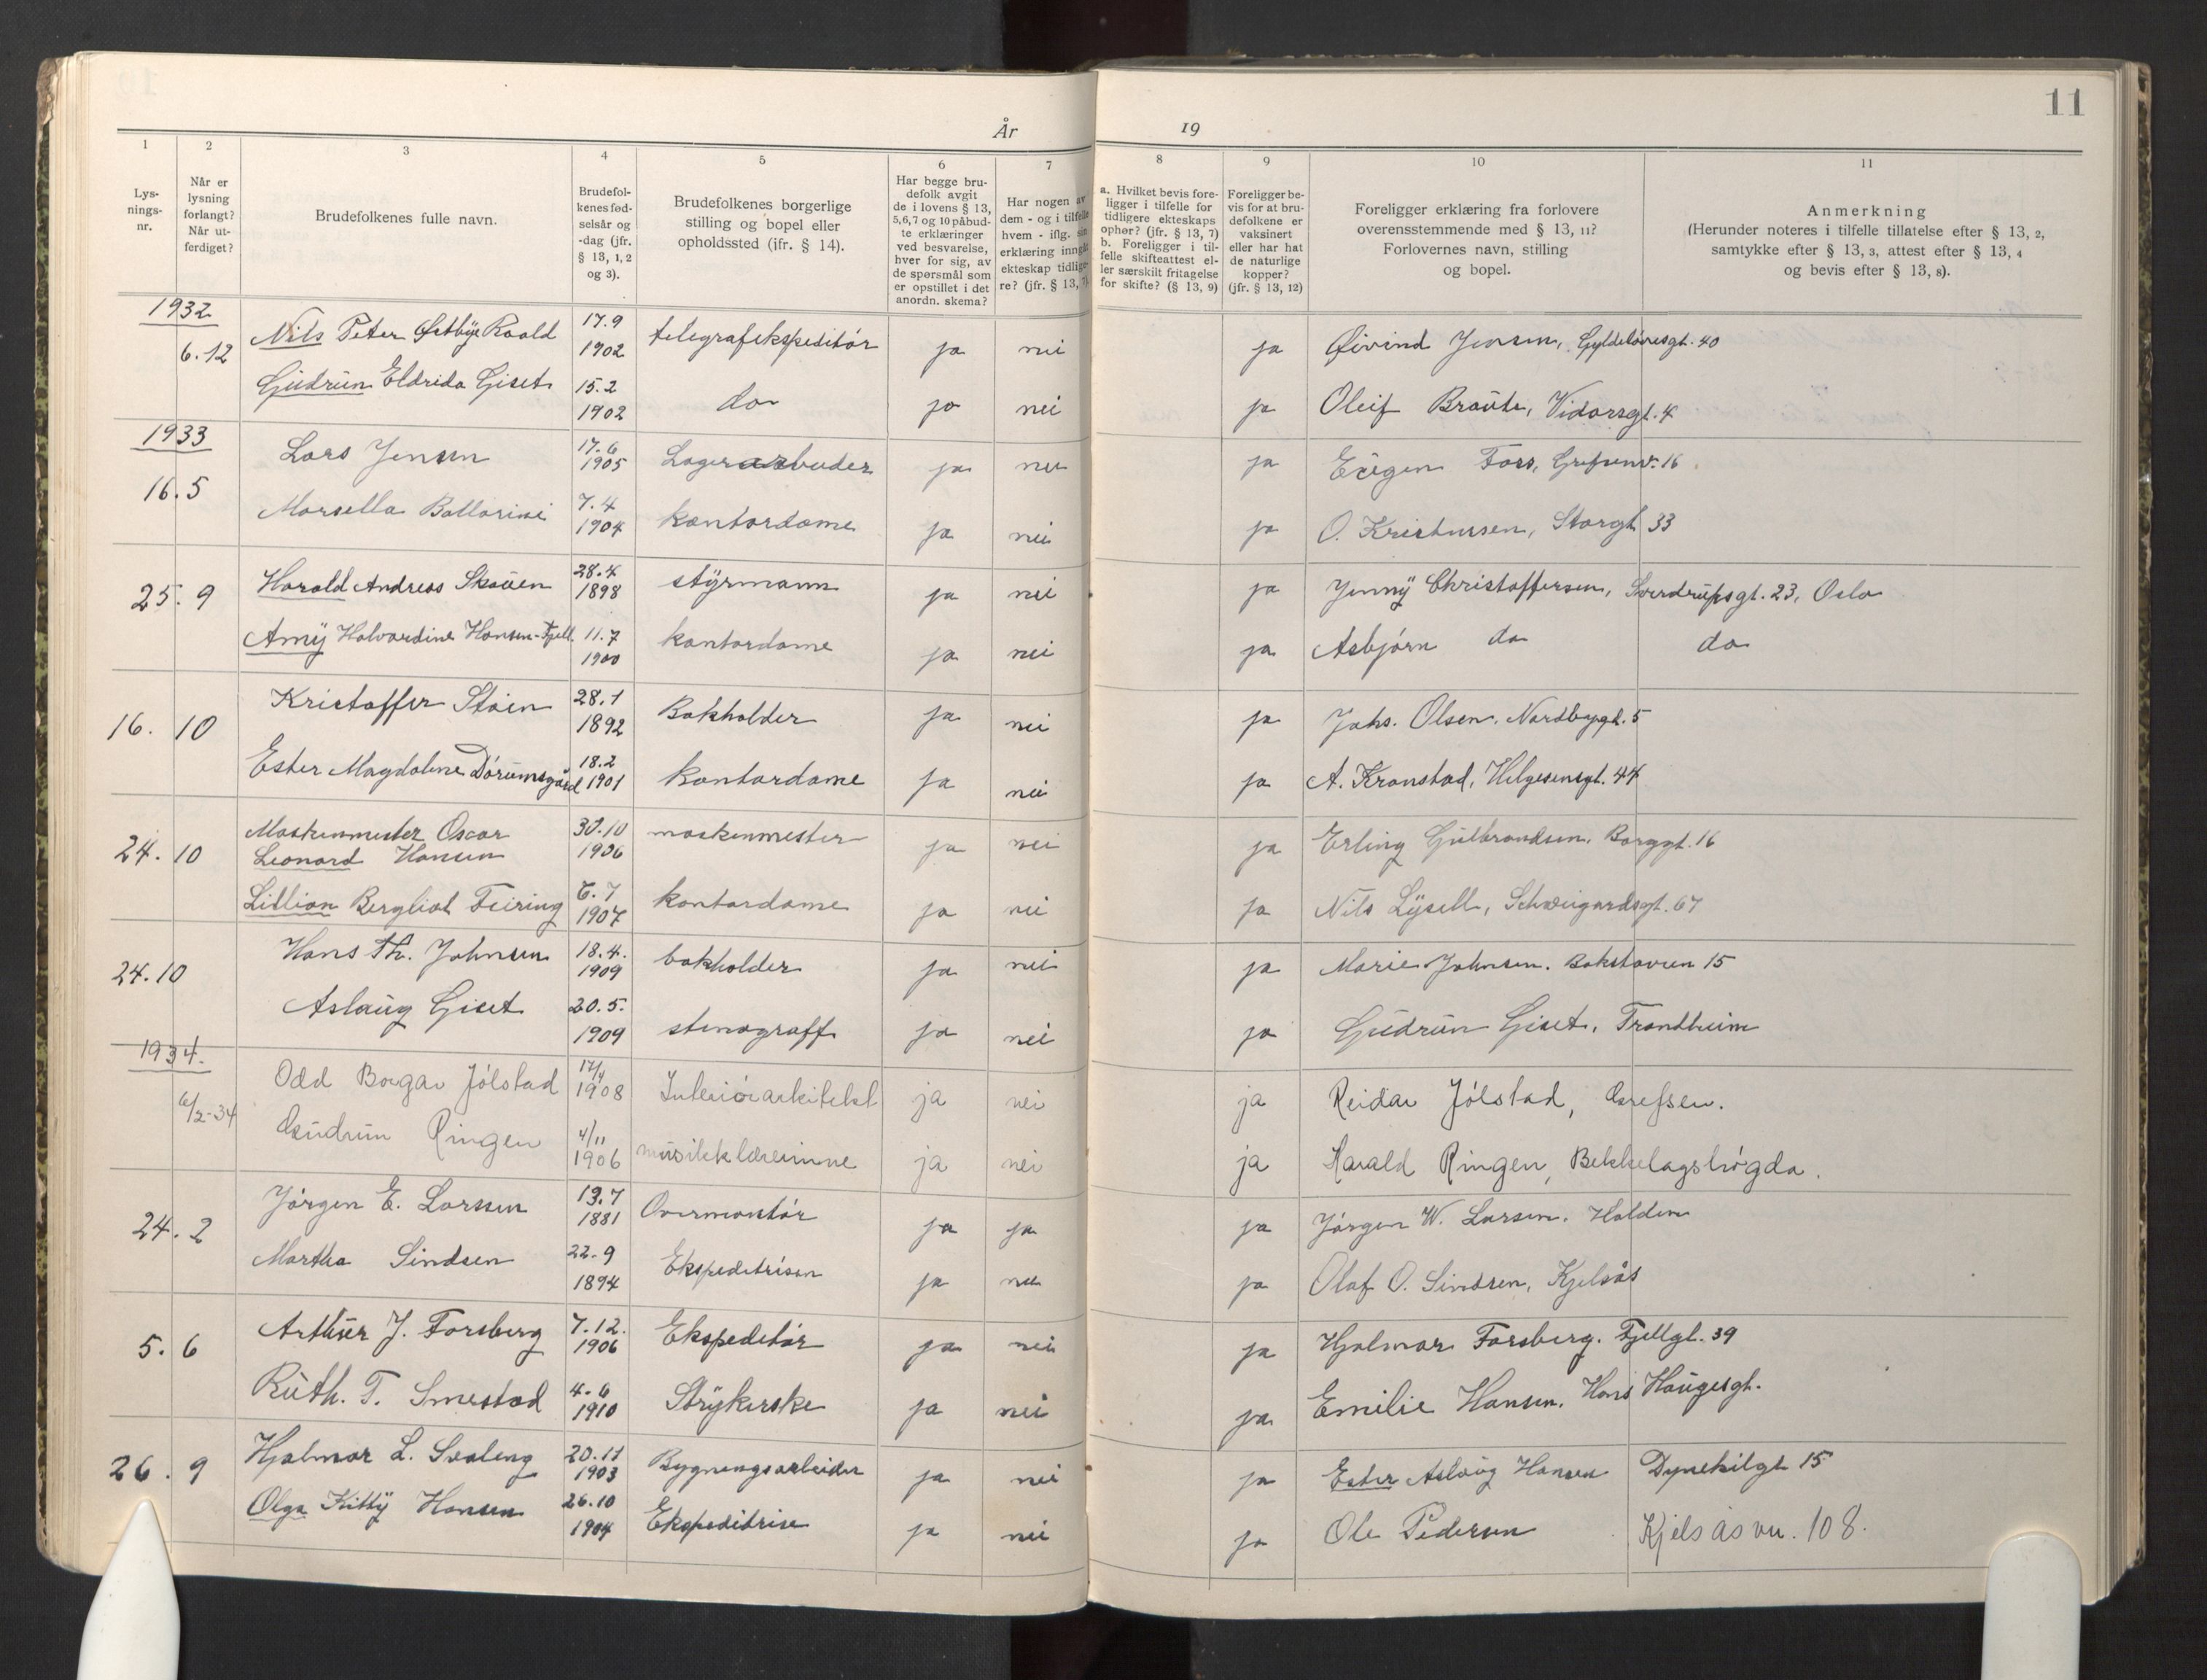 11
År 19
1 2 3 4 5 6 7 8 9 10 11
Lys-
nings-
nr.
Når er
lysning
forlangt?
Når ut-
ferdiget?
Brudefolkenes fulle navn.
Brudefol-
kenes fød-
selsår og
-dag (jfr.
§ 13, 1, 2
og 3).
Brudefolkenes borgerlige
stilling og bopel eller
opholdssted (ifr. § 14).
Har begge bru-
defolk avgit
de i lovens § 13,
5,6,7 og 10 påbud-
te erklæringer
ved besvarelse,
hver for sig, av
de spørsmål som
er opstillet i det
anordn. skema?
Har nogen av
dem - og i tilfelle
hvem - iflg. sin
erklæring inngått
ekteskap tidlige-
re? (jfr. § 13, 7)
a. Hvilket bevis fore-
ligger i tilfelle for
tidligere ekteskaps
ophør? (jfr. § 13, 7)
b. Foreligger i til-
felle skifteattest el-
ler særskilt fritagelse
for skifte? (§ 13, 9)
Foreligger be-
vis for at bru-
defolkene er
vaksinert
eller har hat
de naturlige
kopper?
(jfr. § 13, 12)
Foreligger erklæring fra forlovere
overensstemmende med § 13, 11?
Forlovernes navn, stilling
og bopel.
Anmerkning
(Herunder noteres i tilfelle tillatelse efter § 13, 2,
samtykke efter § 13, 3, attest efter § 13, 4
og bevis efter § 13, 8).
1932
6.12 Nils Peter Østbye Roald 17.9 1902 telegrafekspeditör ja nei ja Øivind Jensen, Gyldeløvesgt. 40
Gudrun Eldrida Giset 15.2 1902 do ja nei ja Oleif Bråute, Vidarsgt. 4
1933
16.5 Lars Jensen 17.6 1905 Lagerarbeider ja nei ja Eugen Fors, Grefsenv. 16
Marsella Ballarini 7.4 1904 kontordame ja nei ja O. Kristensen, Storgt 33
25.9 Harald Andreas Skauen 28.4 1898 styrmann ja nei ja Jenny Christoffersen, Sverdrupsgt. 23, Oslo
Amy Halvardine Hansen-Fjell 11.7 1900 kontordame ja nei ja Asbjørn do do
16. 10 Kristoffer Støen 28.1 1892 Bokholder ja nei ja Johs. Olsen, Nordbygt. 5
Ester Magdalene Dörumsgård 18.2 1901 kontordame ja nei ja A. Kronstad, Helgesensgt. 44
24. 10 Maskinmester Oscar
Leonard Hansen 30.10 1906 maskinmester ja nei ja Erling Gulbrandsen, Borggt. 16
Lillian Bergliot Feiring 6.7 1907 kontordame ja nei ja Nils Lysell, Schweigardsgt. 67
24.10 Hans Th. Johnsen 18.4. 1909 bokholder ja nei ja Marie Johnsen. Bakstavien 15
Aslaug Giset 20.5. 1909 stenograff ja nei ja Gudrun Giset, Trondheim
1934.
6/2-34 Odd Borgar Jólstad 17/4 1908 Interiörarkitekt ja nei ja Reidar Jólstad, Grefsen.
Gudrun Ringen 4/11 1906 musikklærerinne ja nei ja Harald Ringen, Bekkelagshögda.
24. 2 Jörgen E. Larssen 13.7 1881 Overmontör ja ja ja Jörgen W. Larsen. Halden
Martha Sindsen 22.9 1894 Ekspeditrisen ja nei ja Olaf O. Sindsen, Kjelsås
5. 6 Arthur J. Forsberg 7.12. 1906 Ekspeditör ja nei ja Hjalmar Forsberg. Fjellgt. 39
Ruth. T. Smestad 4.6 1910 Strykerske ja nei ja Emilie Hansen. Hans Haugesgt.
26. 9 Hjalmar L. Svaleng 20.11 1903 Bygningsarbeider ja nei ja Ester Aslaug Hansen Dynekilgt 15
Olga Kitty Hansen 26.10 1904 Ekspeditrise ja nei ja Ole Pedersen Kjelsåsvn. 108.